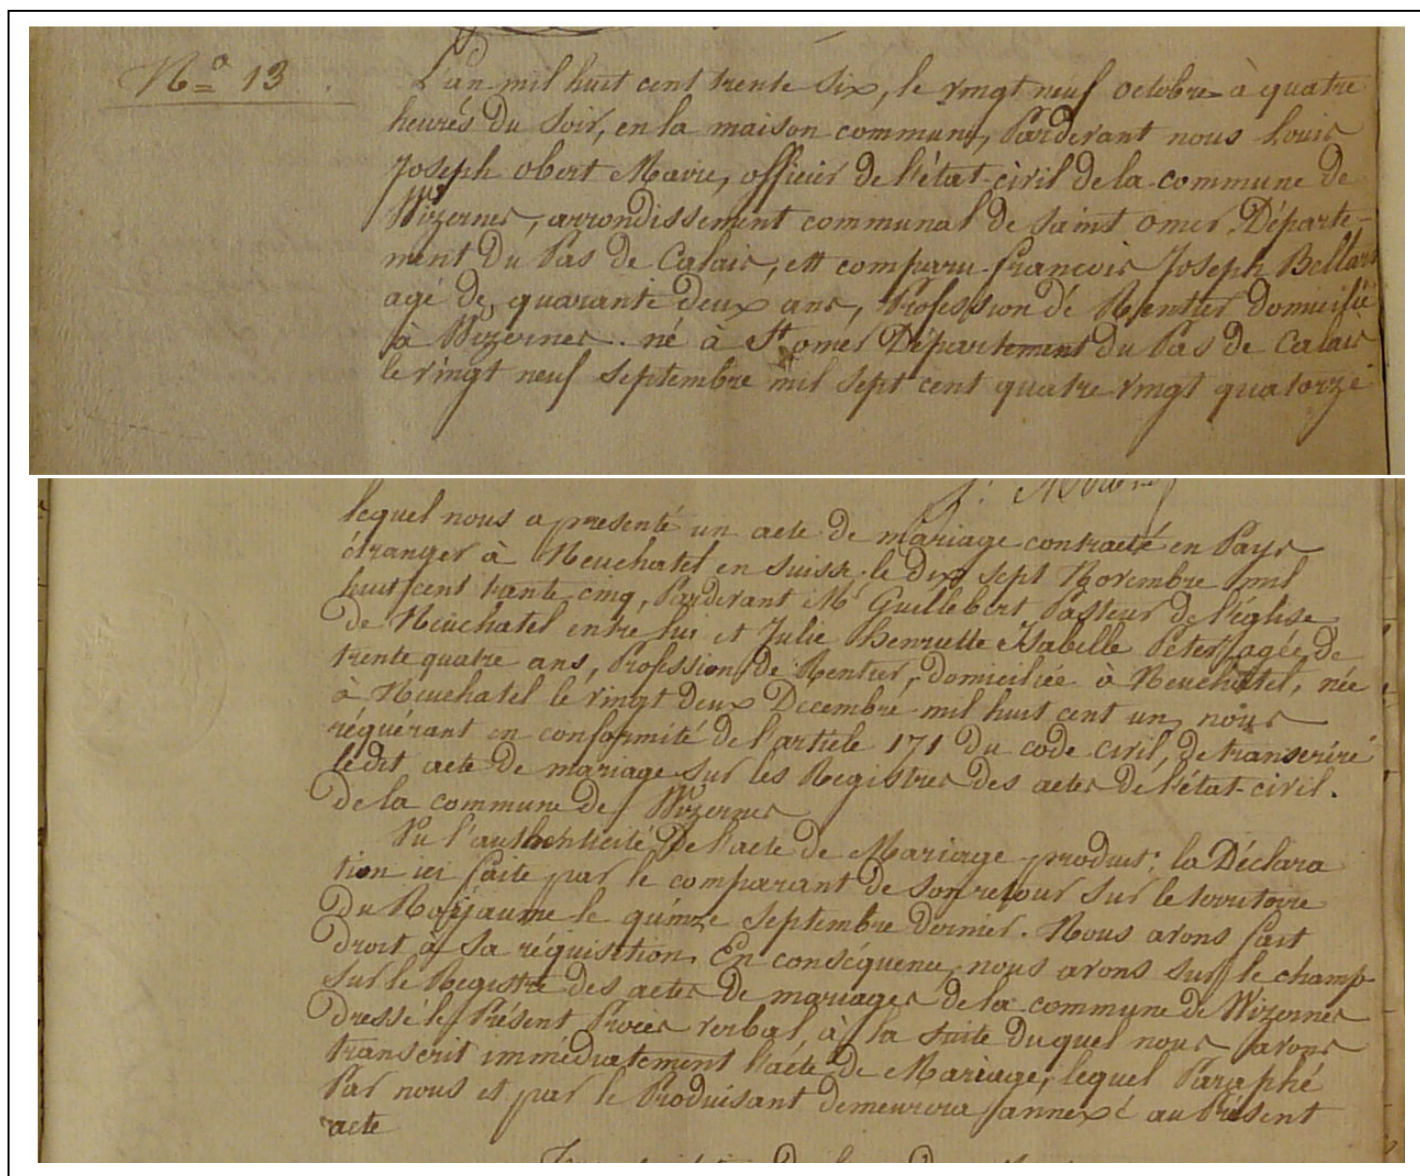 N.o 13
L'an mil huit cent trente six, le vingt neuf octobre à quatre
heures du soir, en la maison commune, Pardevant nous Louis
Joseph obert Maire, officier de l'état-civil de la commune de
Wizernes, arrondissement communal de saint omer Départe-
ment du Pas de Calais, est comparu françois Joseph Bellard
agé de quarante deux ans, Profession de Rentier domicilié
à Wizernes .. né à St omer Département du Pas de Calais
le vingt neuf septembre mil sept cent quatre vingt quatorze
lequel nous a presenté un acte de mariage contracté en Pays
étranger à Neuchatel en suisse le dix sept Novembre mil
huit cent trente cinq, Pardevant Mr Guillebert Pasteur de l'église
de Neuchatel entre lui et Julie henriette Isabelle Peter agée de
trente quatre ans, Profession de Rentier, domiciliée à Neuchatel, née
à Neuchatel le vingt deux Décembre mil huit cent un, nous
réquérant en conformité de l'article 171 du code civil, de transcrire
ledit acte de mariage sur les Registres des actes de l'état-civil.
de la commune de Wizernes
Vu l'authenticité De l'acte de Mariage produit; la Déclara
tion ici faite par le comparant de son retour sur le territoire
du Royaume le quinze septembre dernier. Nous avons fait
droit à sa réquisition. En conséquence, nous avons sur le champ
sur le Registre des actes de mariages de la commune de Wizernes
dressé le Présent Procès verbal, à la suite duquel nous avons
transcrit immédiatement l'acte de Mariage, lequel Paraphé
Par nous et par le Produisant demeurera annexé au Présent
acte